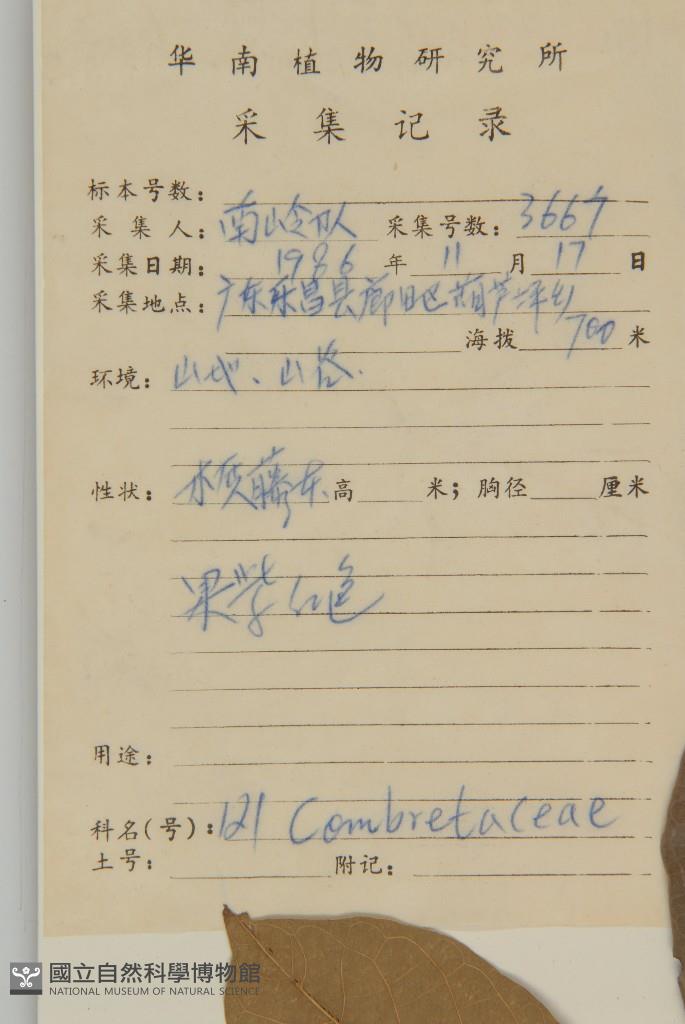 华南植物研究所
采集记录
标本号数：
采集人：南岭队 采集号数：3667
采集日期：1986年11月17日
采集地点：广东乐昌县廊田区葫芦坪乡
海拨 700 米
环境：山地、山谷.
性状：木质藤本 高 米；胸径 厘米
果紫红色
用途：
科名(号)：121 Combretaceae
土号： 附记：
國立自然科學博物館
NATIONAL MUSEUM OF NATURAL SCIENCE